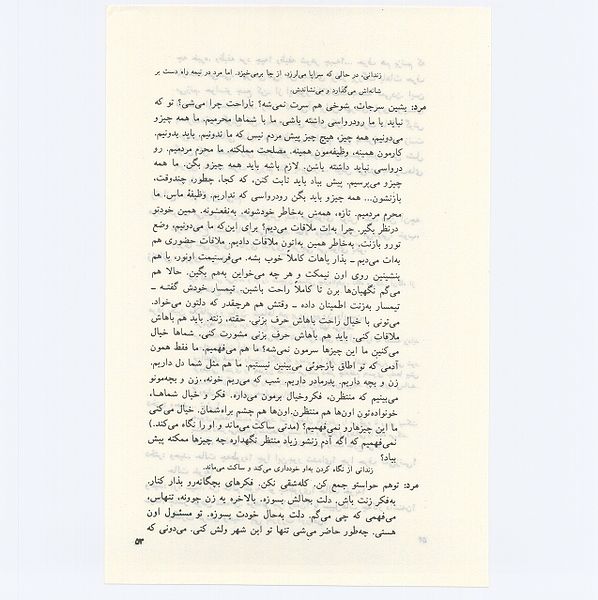 زندانی، در حالی که سراپا می‌لرزد، از جا برمی‌خیزد. اما مرد در نیمه راه دست بر
شانه‌اش می‌گذارد و می‌نشاندش.
مرد: بشین سرجات، شوخی هم سرت نمی‌شه؟ ناراحت چرا می‌شی؟ تو که
نباید با ما رودرواسی داشته باشی. ما با شماها محرمیم. ما همه چیزو
می‌دونیم. همه چیز، هیچ چیز پیش مردم نیس که ما ندونیم. باید بدونیم.
کارمون همینه، وظیفه‌مون همینه. مصلحت مملکته. ما محرم مردمیم. رو
درواسی نباید داشته باشن. لازم باشه باید همه چیزو بگن. ما همه
چیزو می‌پرسیم. پیش بیاد باید ثابت کنن، که کجا، چطور، چندوقت،
بازنشون... همه چیزو باید بگن رودرواسی که نداریم. وظیفهٔ ماس. ما
محرم مردمیم. تازه، همه‌ش به‌خاطر خودشونه. به‌نفعشونه. همین خودتو
درنظر بگیر. چرا به‌ات ملاقات می‌دیم؟ برای این‌که ما می‌دونیم، وضع
تورو بازنت. به‌خاطر همین به‌اتون ملاقات دادیم. ملاقات حضوری هم
به‌ات می‌دیم ــ بذار باهات کاملاً خوب بشه. می‌فرستیمت اونور، با هم
بنشینین روی اون نیمکت و هر چه می‌خواین به‌هم بگین. حالا هم
می‌گم نگهبان‌ها برن تا کاملاً راحت باشین. تیمسار خودش گفتـه ــ
تیمسار به‌زنت اطمینان داده ــ وقتش هم هرچقدر که دلتون می‌خواد.
می‌تونی با خیال راحت باهاش حرف بزنی. حقته، زنته. باید هم باهاش
ملاقات کنی. باید هم باهاش حرف بزنی مشورت کنی. شماها خیال
می‌کنین ما این چیزها سرمون نمی‌شه؟ ما هم می‌فهمیم. ما فقط همون
آدمی که تو اطاق بازجوئی می‌بینین نیستیم. ما هم مثل شما دل داریم.
زن و بچه داریم. پدرمادر داریم. شب که می‌ریم خونه، زن و بچه‌مونو
می‌بینیم که منتظرن. فکروخیال برمون می‌داره. فکر و خیال شماهـا،
خونواده‌تون اون‌ها هم منتظرن. اون‌ها هم چشم براه‌شمان. خیال می‌کنی
ما این چیزهارو نمی‌فهمیم؟ (مدتی ساکت می‌ماند و او را نگاه می‌کند.)
نمی‌فهمیم که اگه آدم زنشو زیاد منتظر نگهداره چه چیزها ممکنه پیش
بیاد؟
زندانی از نگاه کردن به‌او خودداری می‌کند و ساکت می‌ماند.
مرد: توهم حواستو جمع کن. کله‌شقی نکن. فکرهای بچگانه‌رو بذار کنار.
به‌فکر زنت باش. دلت بحالش بسوزه. بالاخره یه زن جوونه، تنهاس،
می‌فهمی که چی می‌گم. دلت به‌حال خودت بسوزه. تو مسئـول اون
هستی. چه‌طور حاضر می‌شی تنها تو این شهر ولش کنی. می‌دونی که
۵۳